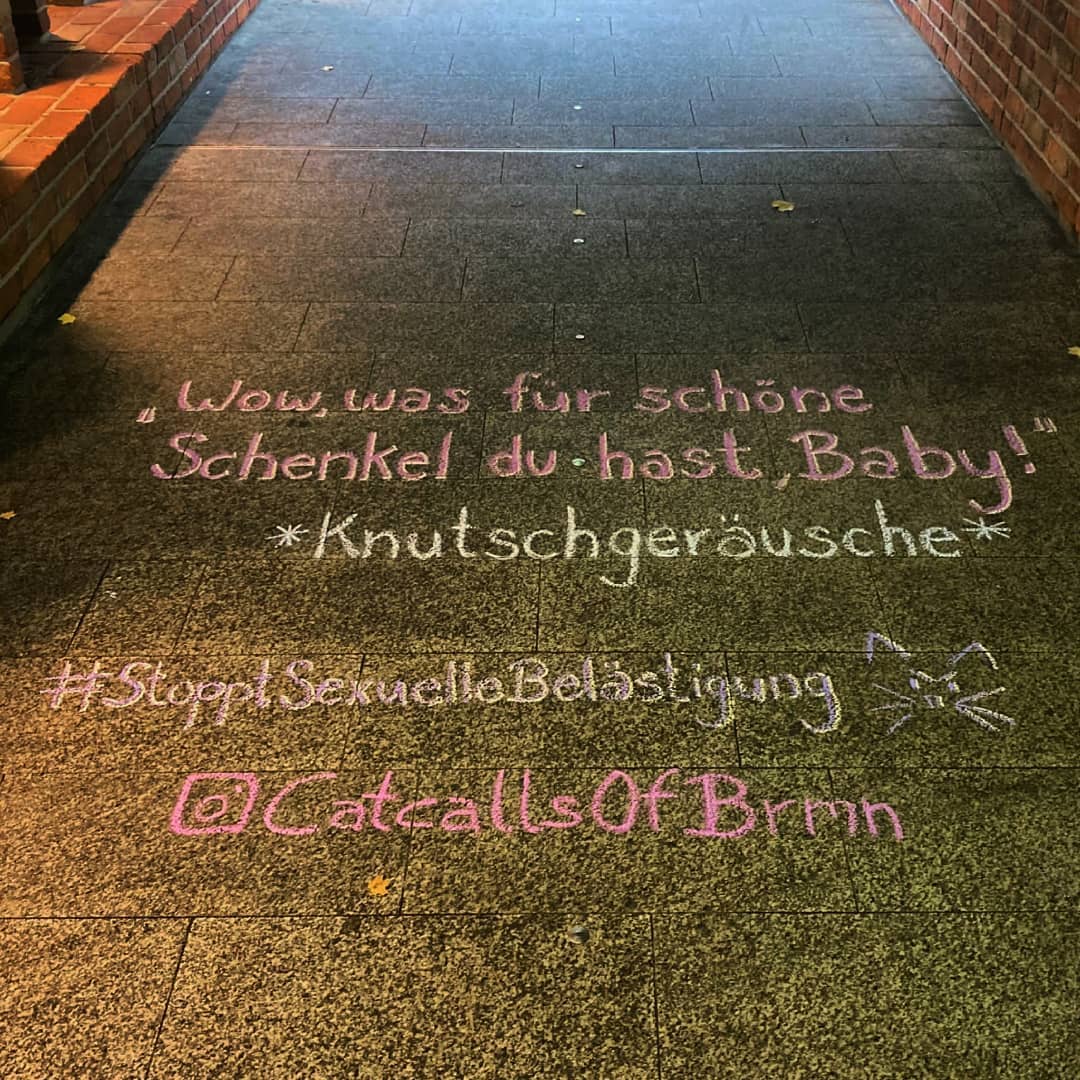 „Wow, was für schöne
Schenkel du hast, Baby!“
*Knutschgeräusche*
#StopptSexuelleBelästigung
CatcallsOfBrmn